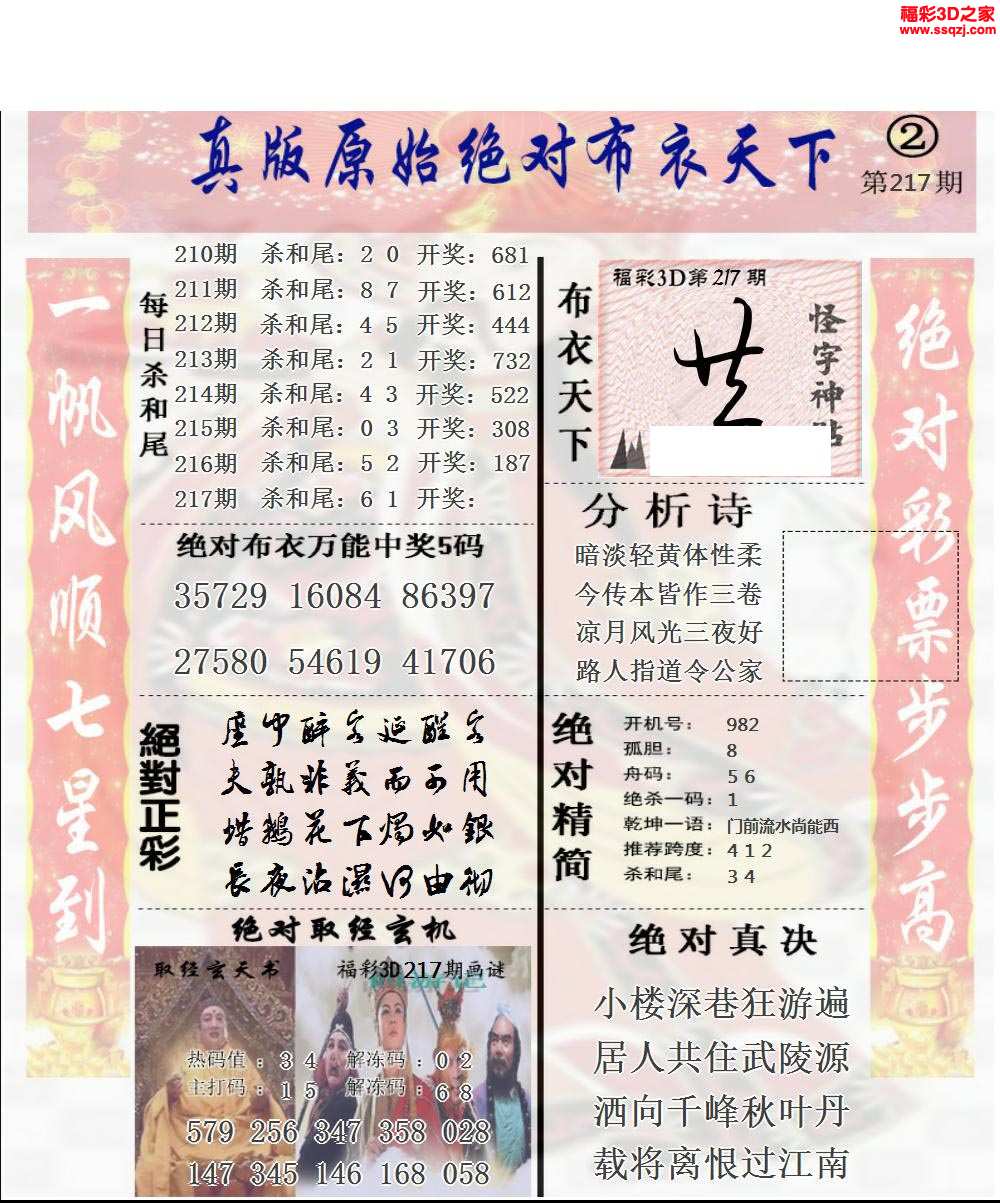 福彩3D之家
www.ssqzj.com
真版原始绝对布衣天下
②
第217期
一帆风顺七星到
每日杀和尾
210期 杀和尾：2 0 开奖：681
211期 杀和尾：8 7 开奖：612
212期 杀和尾：4 5 开奖：444
213期 杀和尾：2 1 开奖：732
214期 杀和尾：4 3 开奖：522
215期 杀和尾：0 3 开奖：308
216期 杀和尾：5 2 开奖：187
217期 杀和尾：6 1 开奖：
绝对布衣万能中奖5码
35729 16084 86397
27580 54619 41706
絕對正彩
座中醉客延醒客
夫孰非義而可用
惜鵝花下燭如銀
長夜沾濕何由彻
绝对取经玄机
取经玄天书
福彩3D217期画谜
热码值：3 4 解冻码：0 2
主打码：1 5 解冻码：6 8
579 256 347 358 028
147 345 146 168 058
布衣天下
福彩3D第217期
怪字神
分析诗
暗淡轻黄体性柔
今传本皆作三卷
凉月风光三夜好
路人指道令公家
绝对精简
开机号：982
孤胆：8
舟码：5 6
绝杀一码：1
乾坤一语：门前流水尚能西
推荐跨度：4 1 2
杀和尾：3 4
绝对真决
小楼深巷狂游遍
居人共住武陵源
洒向千峰秋叶丹
载将离恨过江南
绝对彩票步步高